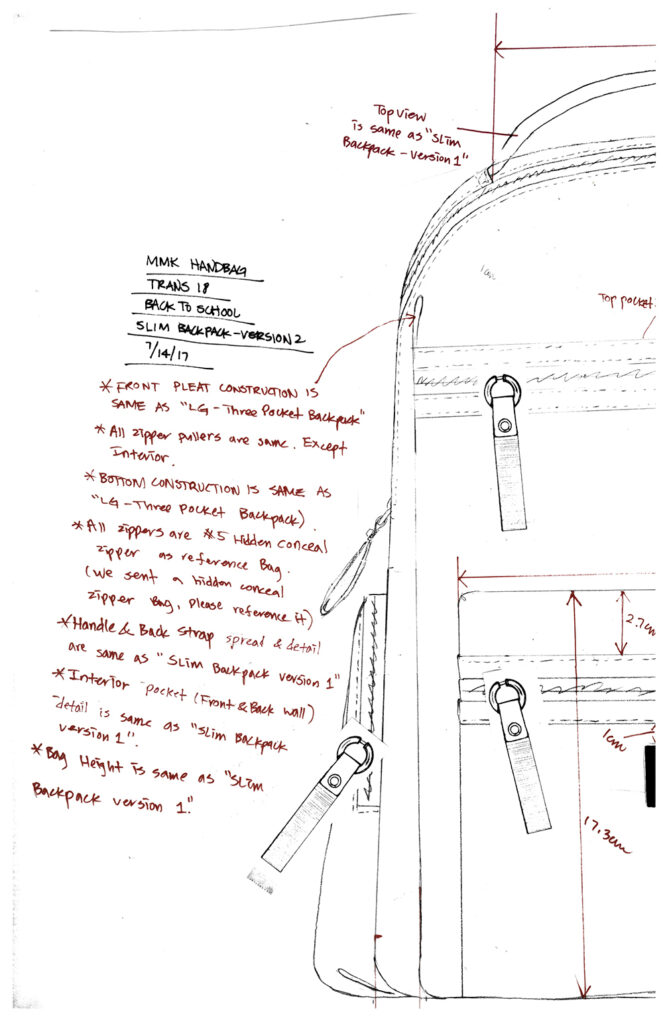 Top view
is same as "Slim
Backpack - Version 1"
1cm
MMK HANDBAG
TRANS 18
BACK TO SCHOOL
SLIM BACKPACK-VERSION 2
7/14/17
Top pocket
* FRONT PLEAT CONSTRUCTION IS
SAME AS "LG - Three Pocket Backpack"
* All zipper pullers are same. Except
Interior.
* BOTTOM CONSTRUCTION IS SAME AS
"LG - Three Pocket Backpack).
* All zippers are #5 Hidden conceal
zipper as reference Bag.
(we sent a hidden conceal
zipper Bag, Please reference it)
* Handle & Back Strap spread & detail
are same as "Slim Backpack version 1"
* Interior pocket (Front & Back wall)
detail is same as "Slim Backpack
version 1".
* Bag Height is same as "Slim
Backpack version 1."
2.7cm
1cm
17.3cm